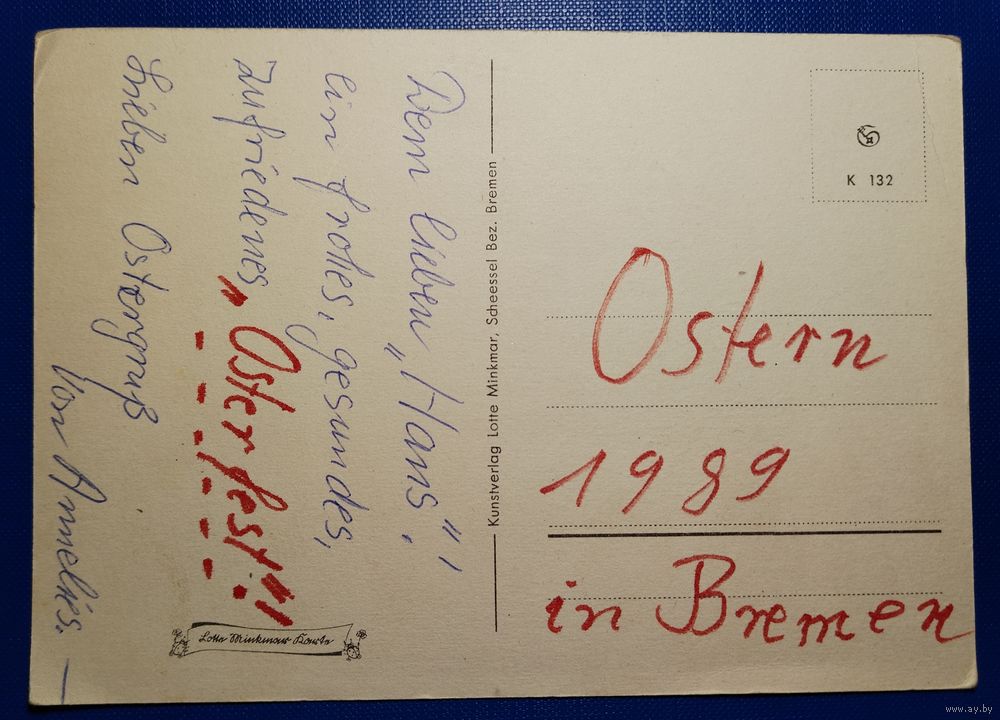 Dem lieben „Hans",
ein frohes, gesundes,
zufriedenes
„Osterfest!"
Lieben Ostergruß
Von Annelies.
Lotte Minkmar Karte
Kunstverlag Lotte Minkmar, Scheessel Bez. Bremen
K 132
Ostern
1989
in Bremen
www.ay.by